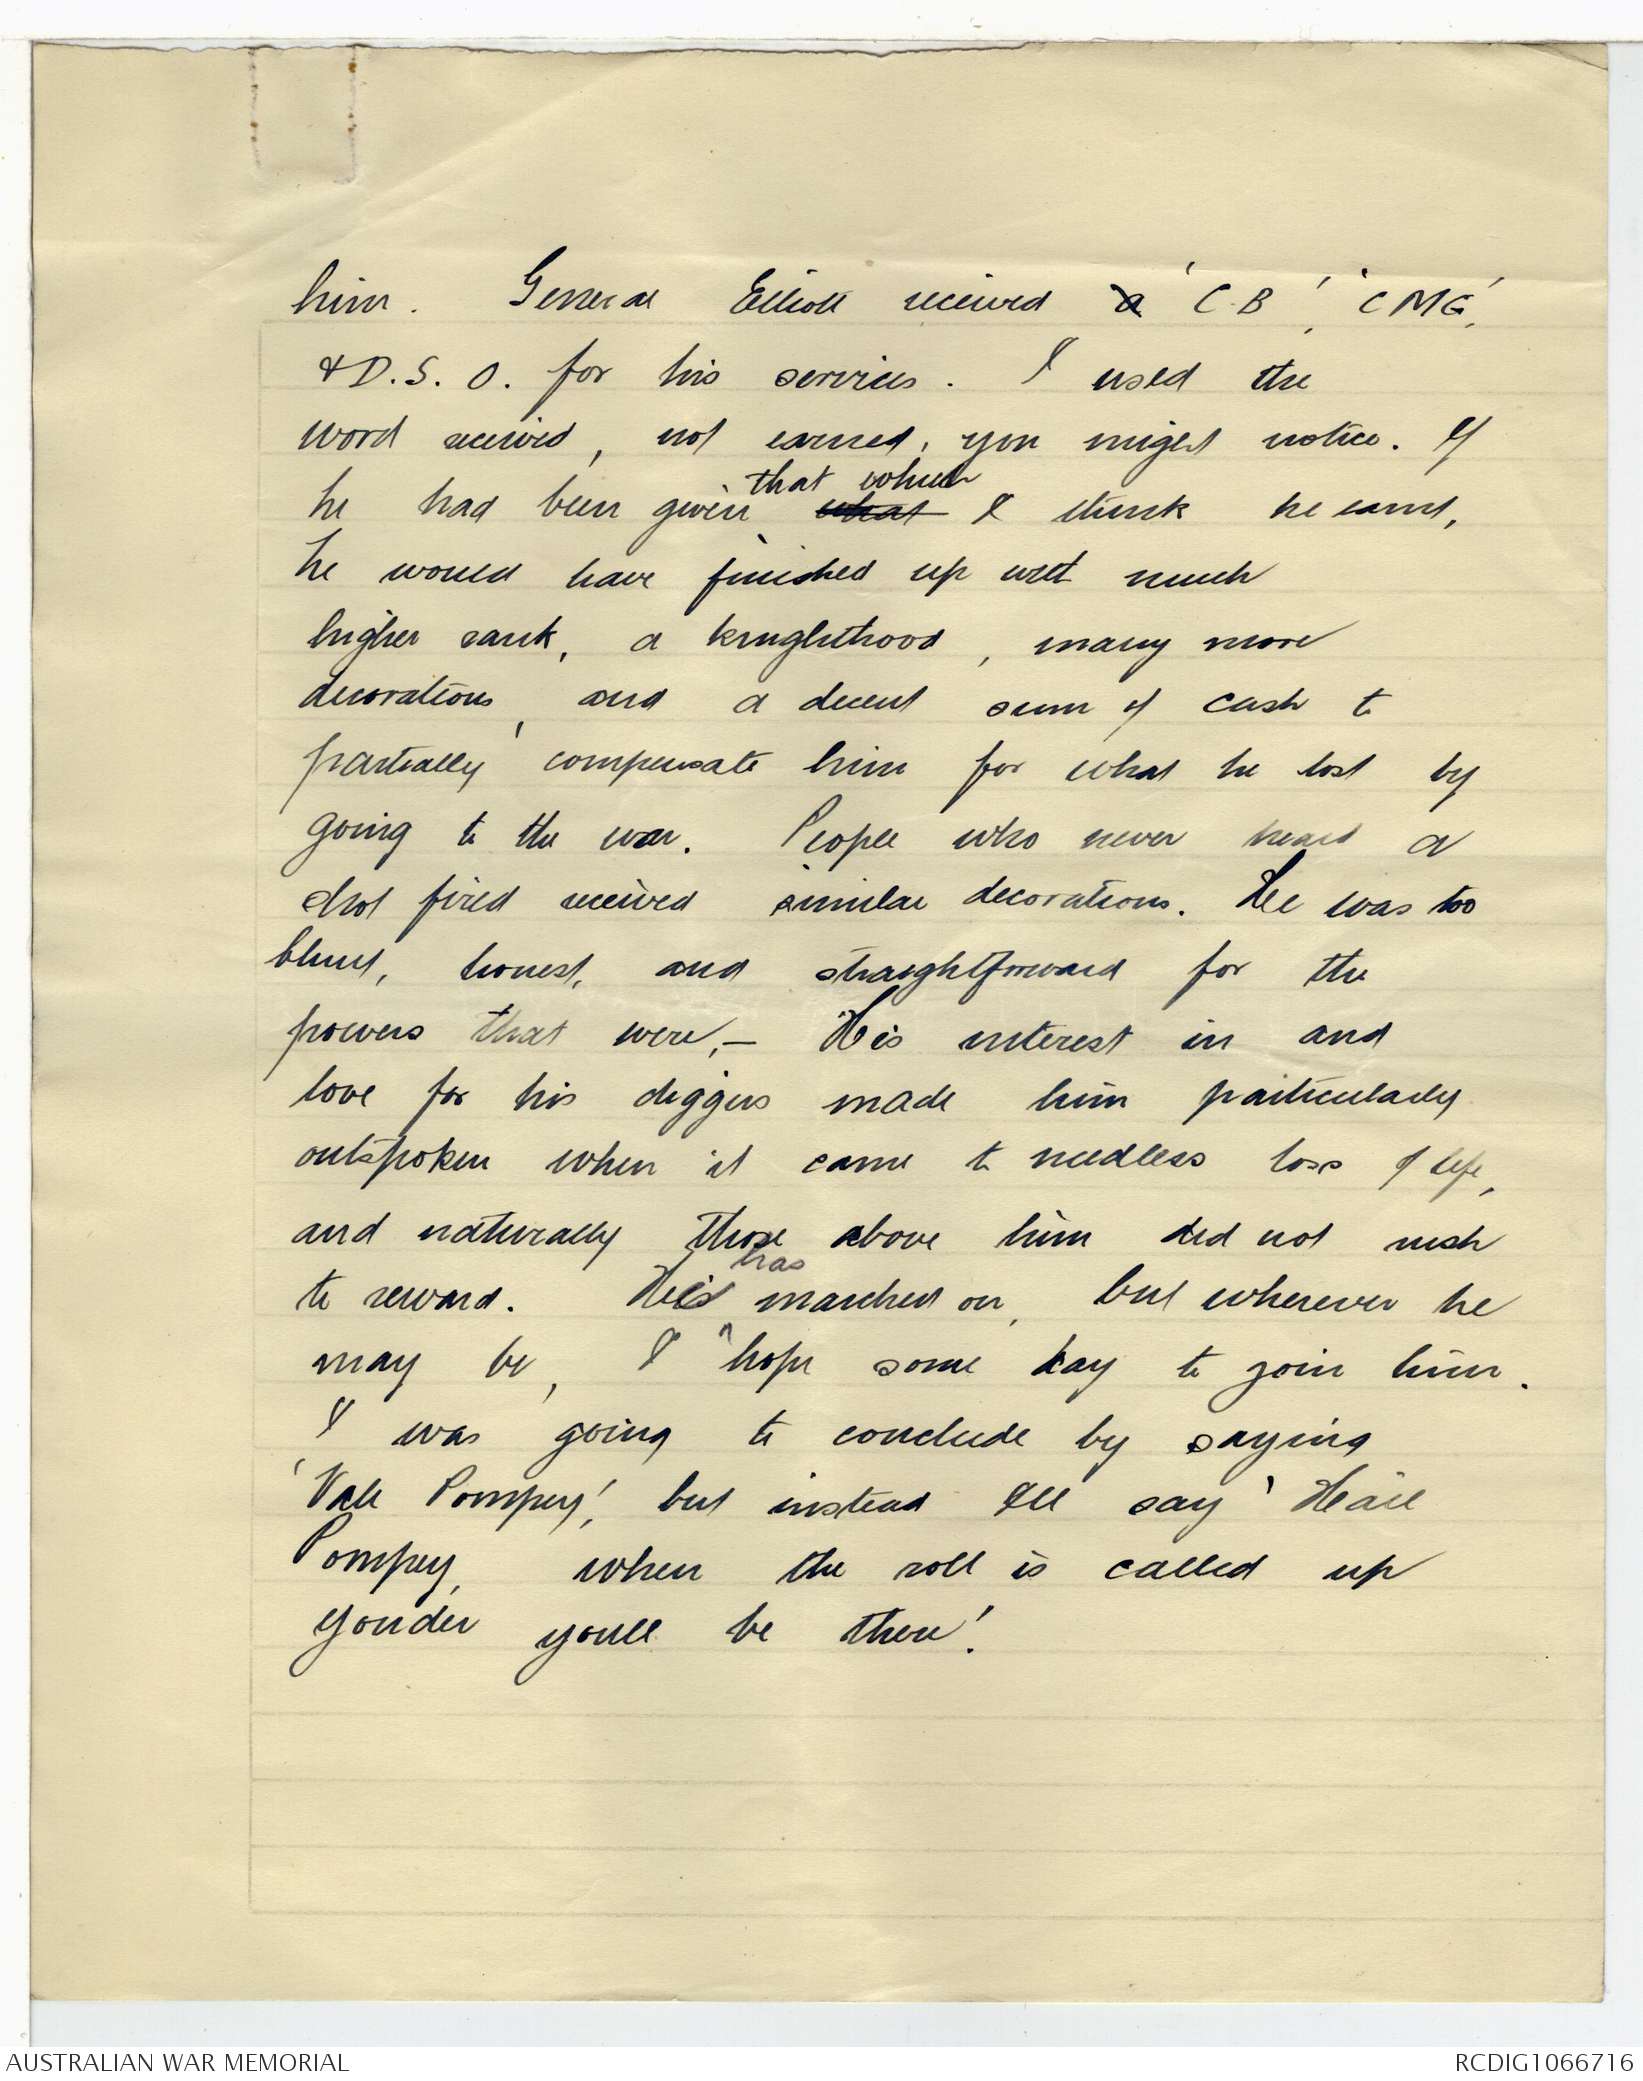 him. General Elliott received a 'C.B', 'CMG',
& D.S.O. for his services. I used the
word received, not earned, you might notice. If
that which
he had been given what I think he earnt,
he would have finished up with much
higher rank, a knighthood, many more
decorations, and a decent sum of cash to
partially compensate him for what he lost by
going to the war. People who never heard a
shot fired received similar decorations. He was too
blunt, honest, and straightforward for the
powers that were,- His interest in and
love for his diggers made him particularly
outspoken when it came to needless loss of life,
and naturally those above him did not rush
has
to reward. He's marched on, but wherever he
may be, I hope some day to join him.
I was going to conclude by saying
'Vale Pompey', but instead I'll say 'Hail
Pompey, when the roll is called up
yonder you'll be there'.
AUSTRALIAN WAR MEMORIAL
RCDIG1066716